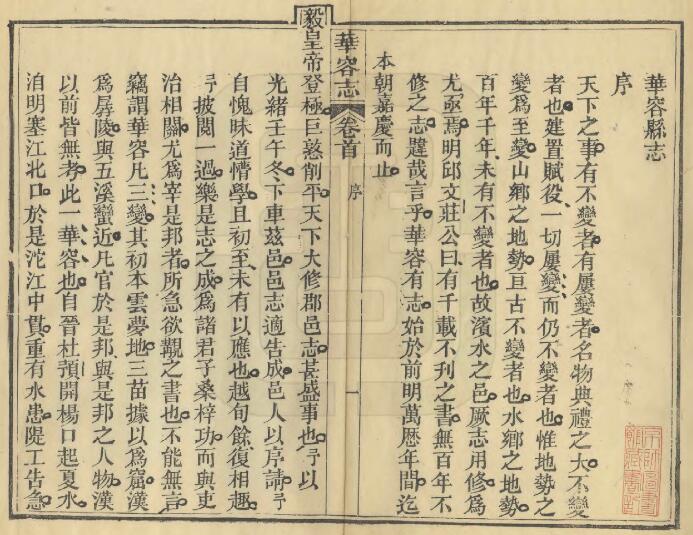 華容縣志
序
天下之事有不變者有屢變者名物典禮之大不變
者也建置賦役一切屢變而仍不變者也惟地勢之
變爲至變山鄉之地勢亘古不變者也水鄉之地勢
百年千年未有不變者也故濱水之邑厥志用修爲
尤亟焉明邱文莊公曰有千載不刊之書無百年不
修之志韙哉言乎華容有志始於前明萬厯年間迄
本朝嘉慶而止
華容志
卷首
序
一
毅皇帝登極巨憝削平天下大修郡邑志甚盛事也予以
光緒壬午冬下車茲邑邑志適告成邑人以序請予
自愧昧道懵學且初至未有以應也越旬餘復相趣
予披閱一過樂是志之成爲諸君子桑梓功而與吏
治相關尤爲宰是邦者所急欲覯之書也不能無言
竊謂華容凡三變其初本雲夢地三苗據以爲窟漢
爲孱陵與五溪蠻近凡官於是邦與是邦之人物漢
以前皆無考此一華容也自晉杜預開楊口起夏水
洎明塞江北口於是沱江中貫重有水患隄工告急